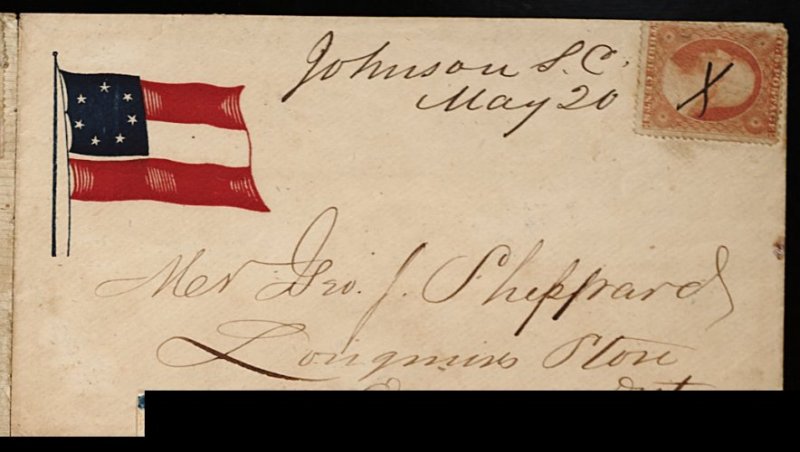 Johnson S.C.
May 20
X
Mr Geo. J. Sheppard
Longmires Store